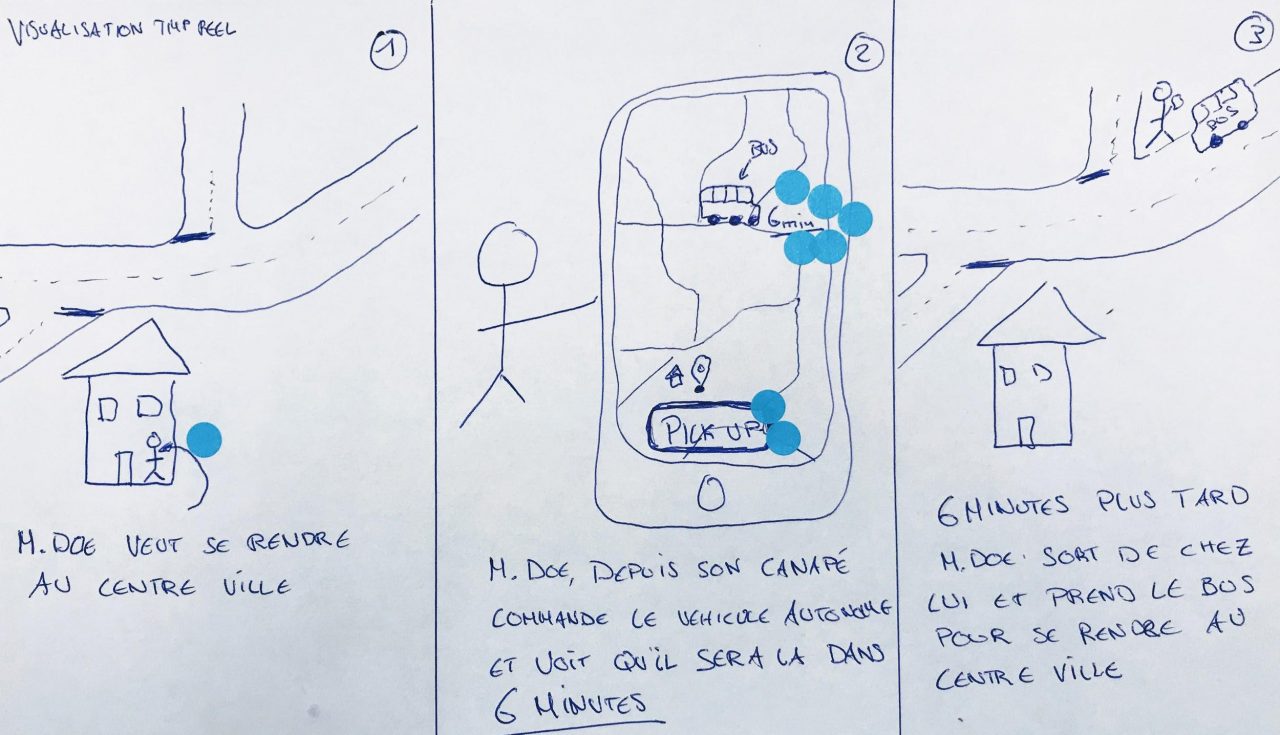 VISUALISATION TMP REEL
1
M. DOE VEUT SE RENDRE
AU CENTRE VILLE
2
BUS
6min
PICK UP
M. DOE, DEPUIS SON CANAPÉ
COMMANDE LE VEHICULE AUTONOME
ET VOIT QU'IL SERA LA DANS
6 MINUTES
3
BUS
6 MINUTES PLUS TARD
M. DOE SORT DE CHEZ
LUI ET PREND LE BUS
POUR SE RENDRE AU
CENTRE VILLE